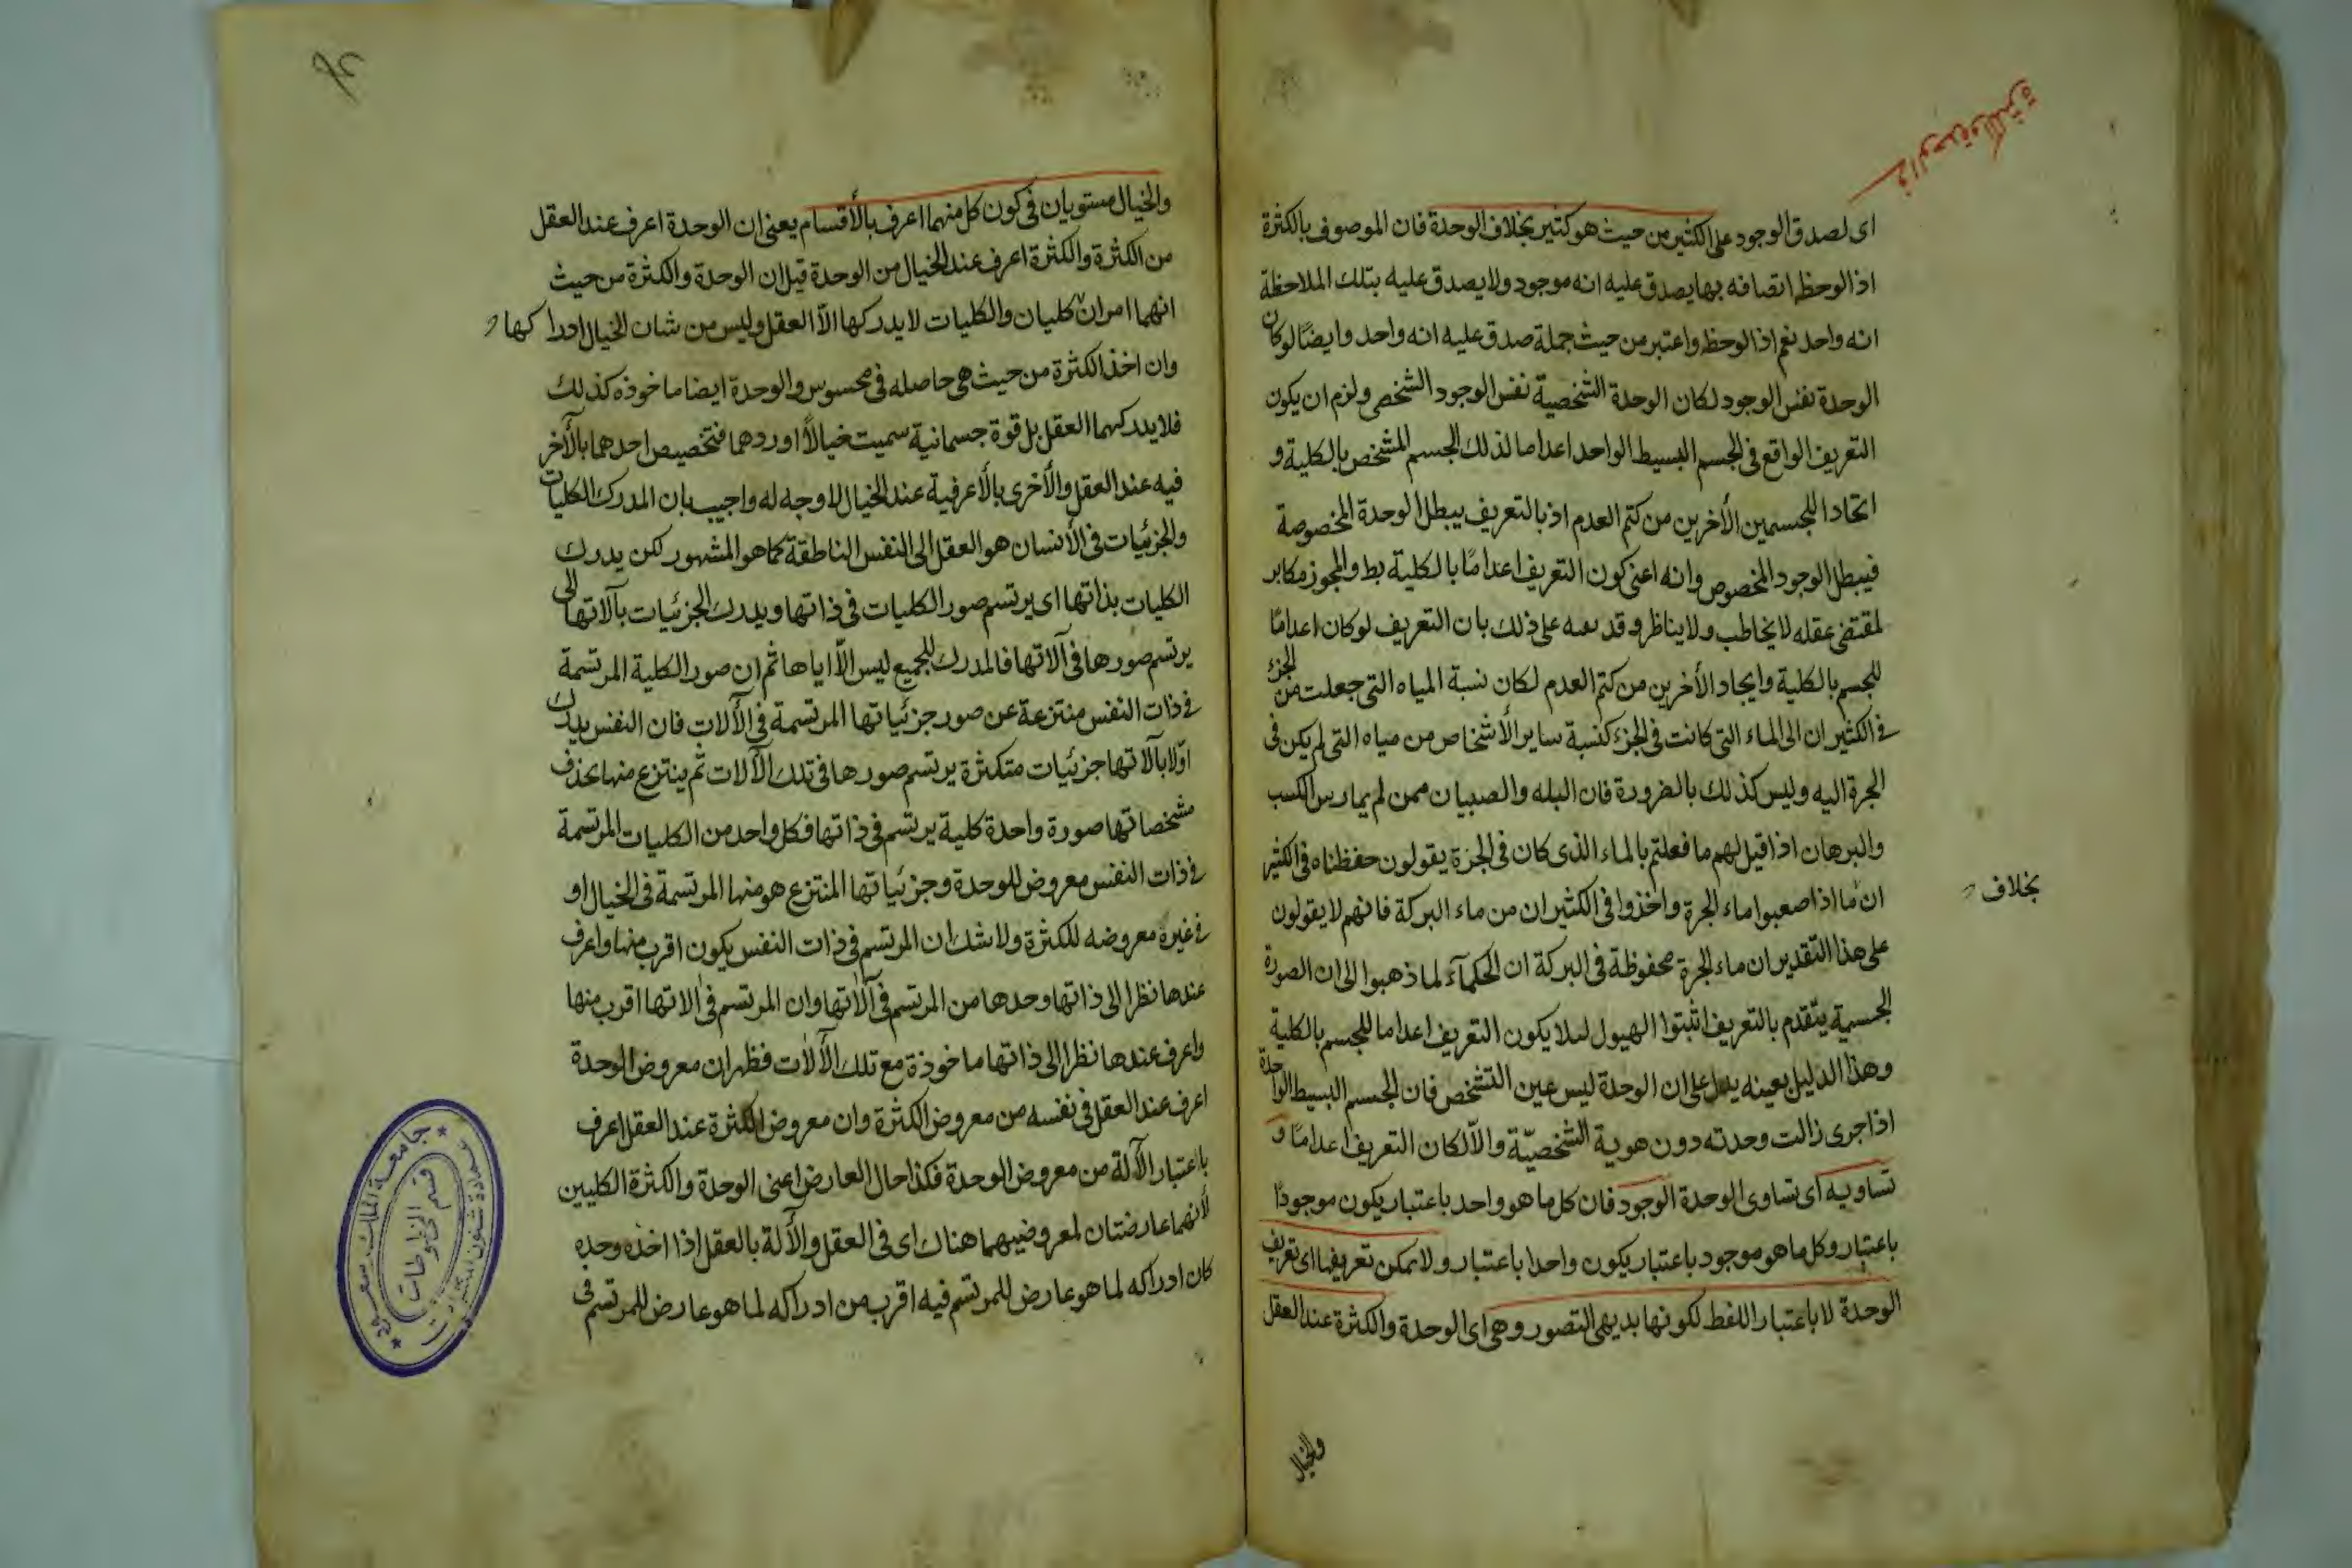 في الوحدة والكثرة
اى لصدق الوجود على الكثير من حيث هو كثير بخلاف الوحدة فان الموصوف بالكثرة
اذا لوحظ اتصافه بها يصدق عليه انه موجود ولا يصدق عليه بتلك الملاحظة
انه واحد نعم اذا لوحظ واعتبر من حيث جملة صدق عليه انه واحد وايضا لو كان
الوحدة نفس الوجود لكان الوحدة الشخصية نفس الوجود الشخصى ولزم ان يكون
التعريف الواقع فى الجسم البسيط الواحد اعداما لذلك الجسم المشخص بالكلية و
اتحادا للجسمين الأخرين من كتم العدم اذ بالتعريف يبطل الوحدة المخصوصة
فيبطل الوجود المخصوص وانه اعنى كون التعريف اعدامًا بالكلية بط والمجوز مكابر
لمقتضى عقله لا يخاطب ولا يناظر وقد على ذلك بان التعريف لو كان اعدامًا
للجسم بالكلية وايجاد الأخرين من كتم العدم لكان نسبة المياه التى جعلت من الجزء
فى الكثيران الى الماء التى كانت فى الجزء كنسبة ساير الأشخاص من مياه التى لم يكن فى
الجرة اليه وليس كذلك بالضرورة فان البله والصبيان ممن لم يمارس الكسب
والبرهان اذا قيل لهم ما فعلتم بالماء الذى كان فى الجزة يقولون حفظناه فى الكثير
ان ما اذا صعبوا ماء الجرة واخذوا فى الكثيران من ماء البركة فانهم لا يقولون
بخلاف
على هذا التقدير ان ماء الجرة محفوظة فى البركة ان الحكمآء لما ذهبوا الى ان الصورة
الجسمية يتقدم بالتعريف اثبتوا الهيول لىلا يكون التعريف اعداما للجسم بالكلية
وهذا الدليل بعينه يدل على ان الوحدة ليس عين التشخص فان الجسم البسيط الواحدة
اذا جرى زالت وحدته دون هوية الشخصيّة والّا لكان التعريف اعدامًا و
تساويه اى تساوى الوحدة الوجود فان كل ما هو واحد باعتبار يكون موجودًا
باعتبار وكل ما هو موجود باعتبار يكون واحدا باعتبار ولا يمكن تعريفها اى تعريف
الوحدة لا باعتبار اللفظ لكونها بديهى التصور وهى اى الوحدة والكثرة عند العقل
والخيال
والخيال مستويان فى كون كل منهما اعرف بالأقسام يعنى ان الوحدة اعرف عند العقل
من الكثرة والكثرة اعرف عند الخيال من الوحدة قيل ان الوحدة والكثرة من حيث
انهما امران كليان والكليات لا يدركها الّا العقل وليس من شان الخيال ادراكها
وان اخذ الكثرة من حيث هى حاصله فى محسوس والوحدة ايضا ماخوذه كذلك
فلا يدركهما العقل بل قوة جسمانية سميت خيالًا اوردهما فتخصيص احدهما بالأخر
فيه عند العقل والأخرى بالأعرفية عند الخيال لا وجه له واجيب بان المدرك الكليات
والجزئيات فى الأنسان هو العقل الى النفس الناطقة كما هو المشهور لكن يدرك
الكليات بذاتها اى يرتسم صور الكليات فى ذاتها ويدرك الجزئيات بآلاتها الى
يرتسم صورها فى آلاتها فالمدرك للجميع ليس الّا اياها ثم ان صور الكلية المرتسمة
فى ذات النفس منتزعة عن صور جزئياتها المرتسمة فى الألات فان النفس يدرك
اوّلا بآلاتها جزئيات متكثرة يرتسم صورها فى تلك الآلات ثم ينتزع منها بحذف
مشخصاتها صورة واحدة كلية يرتسم فى ذاتها فكل واحد من الكليات المرتسمة
فى ذات النفس معروض للوحدة وجزئياتها المنتزع هو منها المرتسمة فى الخيال او
فى غيره معروضه للكثرة ولا شك ان المرتسم فى ذات النفس يكون اقرب منها واعرف
عندها نظرا الى ذاتها وحدها من المرتسم فى آلاتها وان المرتسم فى الاتها اقرب منها
واعرف عندها نظرا الى ذاتها ماخوذة مع تلك الألات فظهر ان معروض الوحدة
اعرف عند العقل فى نفسه من معروض الكثرة وان معروض الكثرة عند العقل اعرف
باعتبار الآلة من معروض الوحدة فكذا حال العارض اعنى الوحدة والكثرة الكليين
لأنهما عارضتان لمعروضيهما هناك اى فى العقل والألة بالعقل اذا اخذه وحده
كان ادراكه لما هو عارض للمرتسم فيه اقرب من ادراكه لما هو عارض للمرتسم فى
جامعة الملك سعود
عمادة شئون المكتبات
قسم المخطوطات